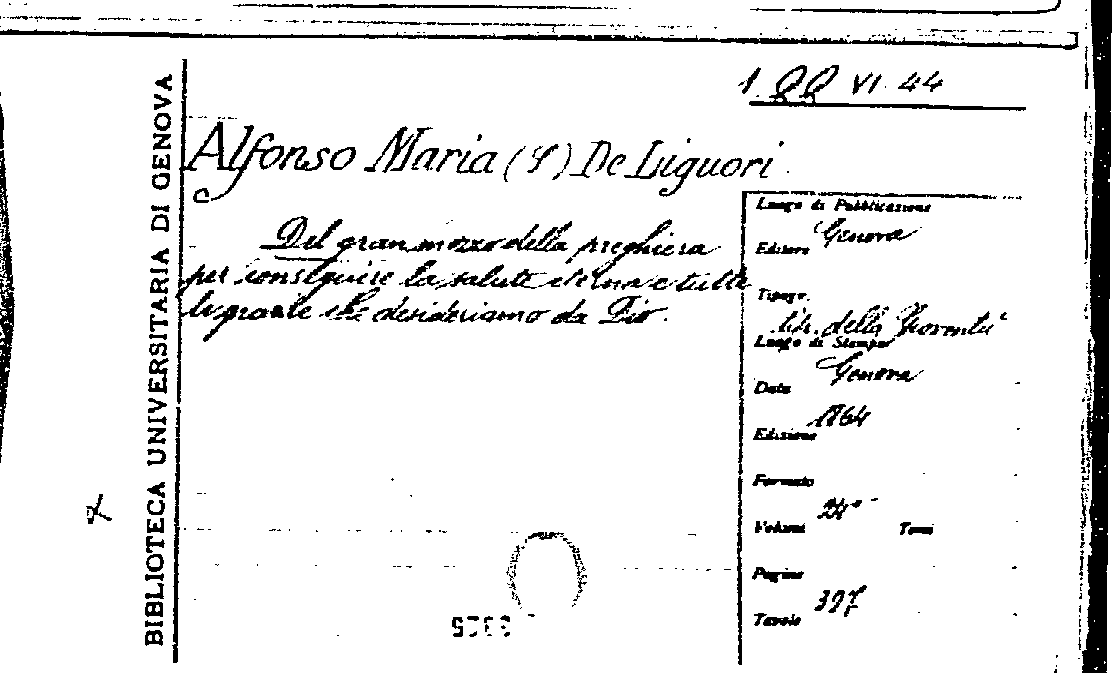 1. QQ VI. 44
BIBLIOTECA UNIVERSITARIA DI GENOVA
Alfonso Maria (S) De Liguori
Del gran mezzo della preghiera
per conseguire la salute eterna e tutte
le grazie che desideriamo da Dio.
Luogo di Pubblicazione
Genova
Editore
Tipogr.
della Gioventù
Luogo di Stampa
Genova
Data
1864
Edizione
Formato
24°
Volumi Tomi
Pagine
397
Tavole